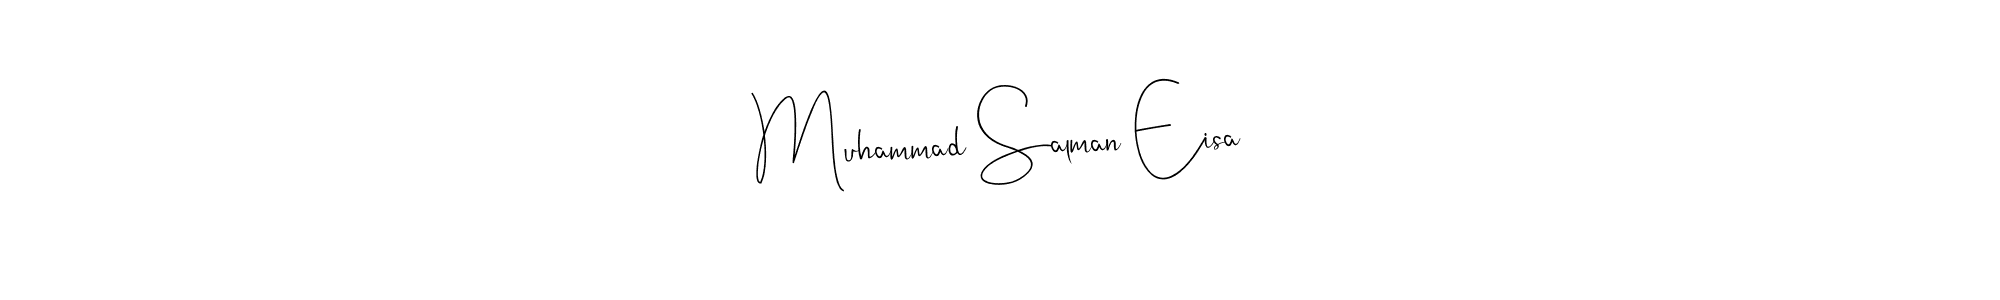 Muhammad Salman Eisa